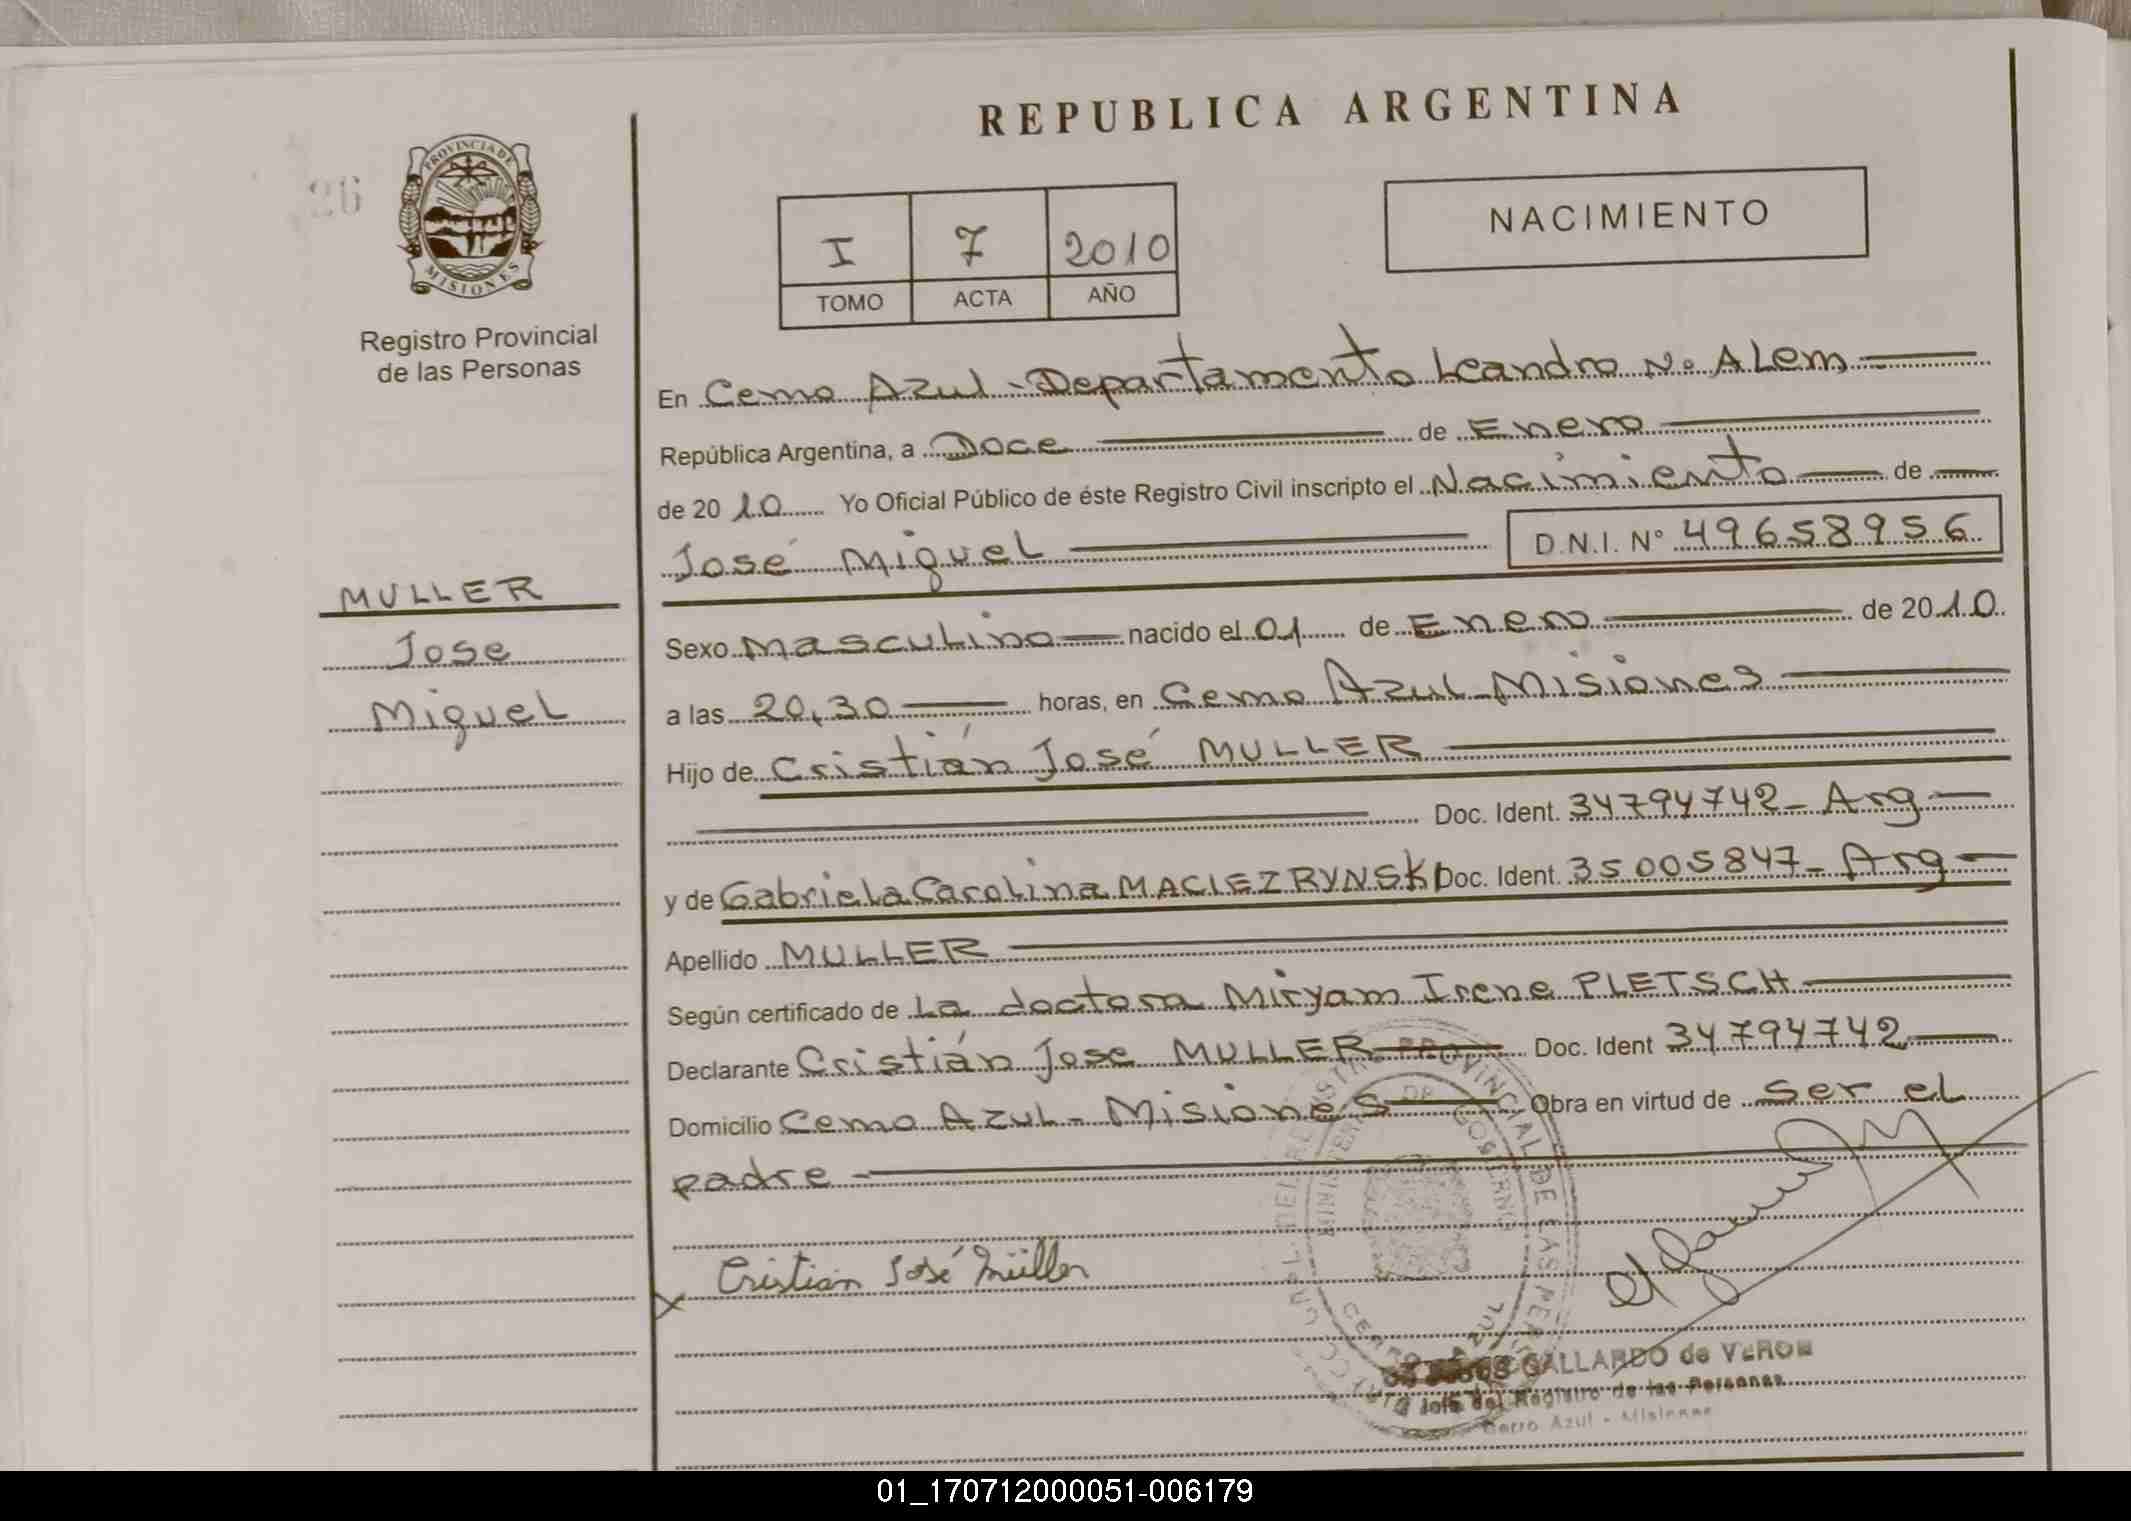 REPUBLICA ARGENTINA
26
PROVINCIA DE
MISIONES
Registro Provincial
de las Personas
I 7 2010
TOMO ACTA AÑO
NACIMIENTO
En Cerro Azul - Departamento Leandro N. ALem
República Argentina, a Doce de Enero
de 2010 Yo Oficial Público de éste Registro Civil inscripto el Nacimiento de
José Miguel D.N.I. N° 49658956
MULLER
Jose
Miguel
Sexo masculino nacido el 01 de Enero de 2010
a las 20,30 horas, en Cerro Azul - Misiones
Hijo de Cristián José MULLER
Doc. Ident. 34794742 - Arg
y de Gabriela Carolina MACIEZRYNSKI Doc. Ident. 35005847 - Arg
Apellido MULLER
Según certificado de La doctora Miryam Irene PLETSCH
Declarante Cristián Jose MULLER Doc. Ident 34794742
Domicilio Cerro Azul - Misiones Obra en virtud de ser el
padre
Cristian José Müller
PROVINCIAL DE LAS PER
MINISTERIO DE GOBIERNO
CERRO AZUL
GALLARDO de VERON
Jefe del Registro de las Personas
Cerro Azul - Misiones
01_170712000051-006179